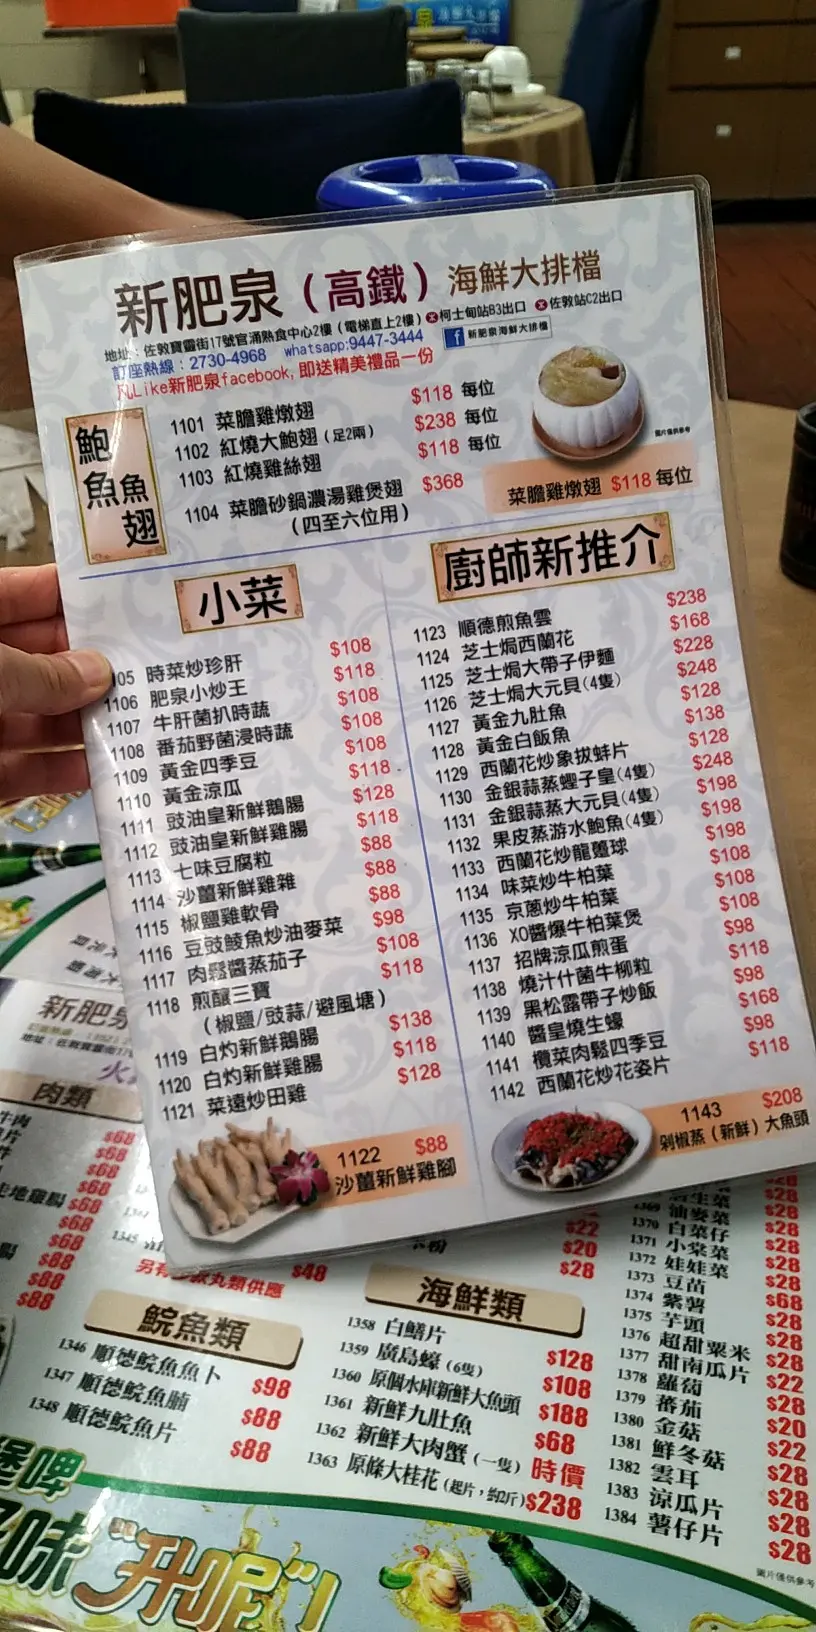 新肥泉（高鐵）海鮮大排檔
地址：佐敦寶靈街17號官涌熟食中心2樓（電梯直上2樓）柯士甸站B3出口 佐敦站C2出口
訂座熱線：2730-4968 whatsapp:9447-3444 f 新肥泉海鮮大排檔
凡Like新肥泉facebook,即送精美禮品一份
鮑魚魚翅
1101 菜膽雞燉翅 $118 每位
1102 紅燒大鮑翅（足2兩） $238 每位
1103 紅燒雞絲翅 $118 每位
1104 菜膽砂鍋濃湯雞煲翅 $368
（四至六位用）
圖片僅供參考
菜膽雞燉翅 $118 每位
小菜
105 時菜炒珍肝 $108
1106 肥泉小炒王 $118
1107 牛肝菌扒時蔬 $108
1108 番茄野菌浸時蔬 $108
1109 黃金四季豆 $108
1110 黃金涼瓜 $118
1111 豉油皇新鮮鵝腸 $128
1112 豉油皇新鮮雞腸 $118
1113 七味豆腐粒 $88
1114 沙薑新鮮雞雜 $88
1115 椒鹽雞軟骨 $88
1116 豆豉鯪魚炒油麥菜 $98
1117 肉鬆醬蒸茄子 $108
1118 煎釀三寶 $118
（椒鹽/豉蒜/避風塘）
1119 白灼新鮮鵝腸 $138
1120 白灼新鮮雞腸 $118
1121 菜遠炒田雞 $128
1122 $88
沙薑新鮮雞腳
廚師新推介
1123 順德煎魚雲 $238
1124 芝士焗西蘭花 $168
1125 芝士焗大帶子伊麵 $228
1126 芝士焗大元貝(4隻) $248
1127 黃金九肚魚 $128
1128 黃金白飯魚 $138
1129 西蘭花炒象拔蚌片 $128
1130 金銀蒜蒸蟶子皇(4隻) $248
1131 金銀蒜蒸大元貝(4隻) $198
1132 果皮蒸游水鮑魚(4隻) $198
1133 西蘭花炒龍躉球 $198
1134 味菜炒牛柏葉 $108
1135 京蔥炒牛柏葉 $108
1136 XO醬爆牛柏葉煲 $108
1137 招牌涼瓜煎蛋 $98
1138 燒汁什菌牛柳粒 $118
1139 黑松露帶子炒飯 $98
1140 醬皇燒生蠔 $168
1141 欖菜肉鬆四季豆 $98
1142 西蘭花炒花姿片 $118
1143 $208
剁椒蒸（新鮮）大魚頭
新肥泉
肉類
牛肉
$68
$68
$68
$68
$68
$68
$88
$88
$88
1345
另有多款丸類供應
$48
$22
$20
$28
鯇魚類
1346 順德鯇魚魚卜 $98
1347 順德鯇魚腩 $88
1348 順德鯇魚片 $88
海鮮類
1358 白鱔片 $128
1359 廣島蠔（6隻） $108
1360 原個水庫新鮮大魚頭 $188
1361 新鮮九肚魚 $68
1362 新鮮大肉蟹（一隻） 時價
1363 原條大桂花（起片，約2斤） $238
1369 油麥菜 $28
1370 白菜仔 $28
1371 小棠菜 $28
1372 娃娃菜 $28
1373 豆苗 $68
1374 紫薯 $28
1375 芋頭 $28
1376 超甜粟米 $28
1377 甜南瓜片 $22
1378 蘿蔔 $28
1379 蕃茄 $20
1380 金菇 $22
1381 鮮冬菇 $28
1382 雲耳 $28
1383 涼瓜片 $28
1384 薯仔片 $28
圖片僅供參考
堡啤
味"升呢"!